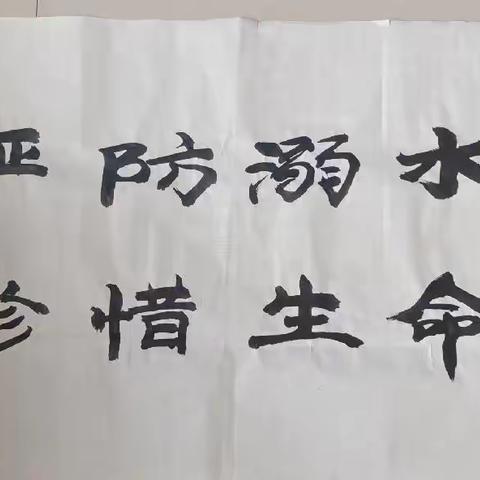 严防溺水
珍惜生命